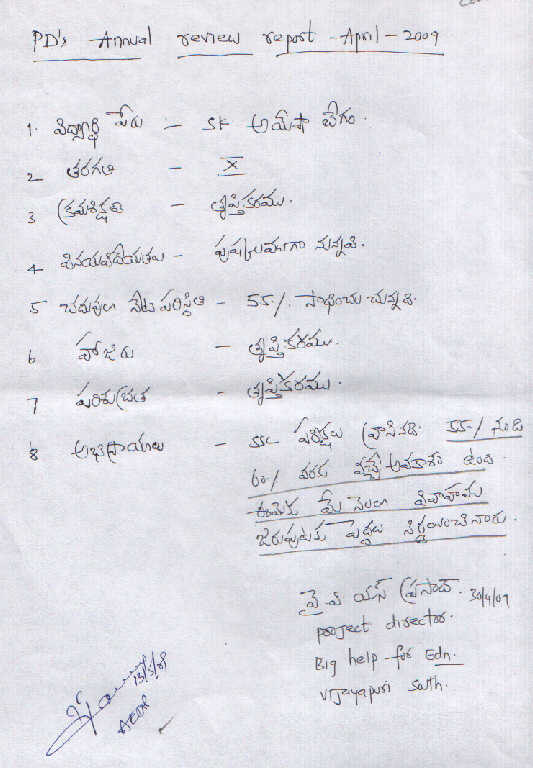 PD's Annual review report - April - 2009
1. విద్యార్థి పేరు - SK అమీషా బేగం.
2 తరగతి - X
3 క్రమశిక్షణ - తృప్తికరము.
4 వినయవిధేయతలు - పుష్కలముగా నున్నవి.
5 చదువులో నేటి పరిస్థితి - 55%. సాధించు చున్నది.
6 హాజరు - తృప్తికరము.
7 పరిశుభ్రత - తృప్తికరము.
8 అభిప్రాయాలు - SSC పరీక్షలు వ్రాసినది. 55% నుండి
60% వరకు వచ్చే అవకాశం ఉంది.
ఈమెకు మే నెలలో వివాహము
జరుపుటకు పెద్దలు నిర్ణయించినారు.
వై వి యస్ ప్రసాద్. 30/4/09
project director.
Big help for Edn.
vijayapuri south.
13/5/09